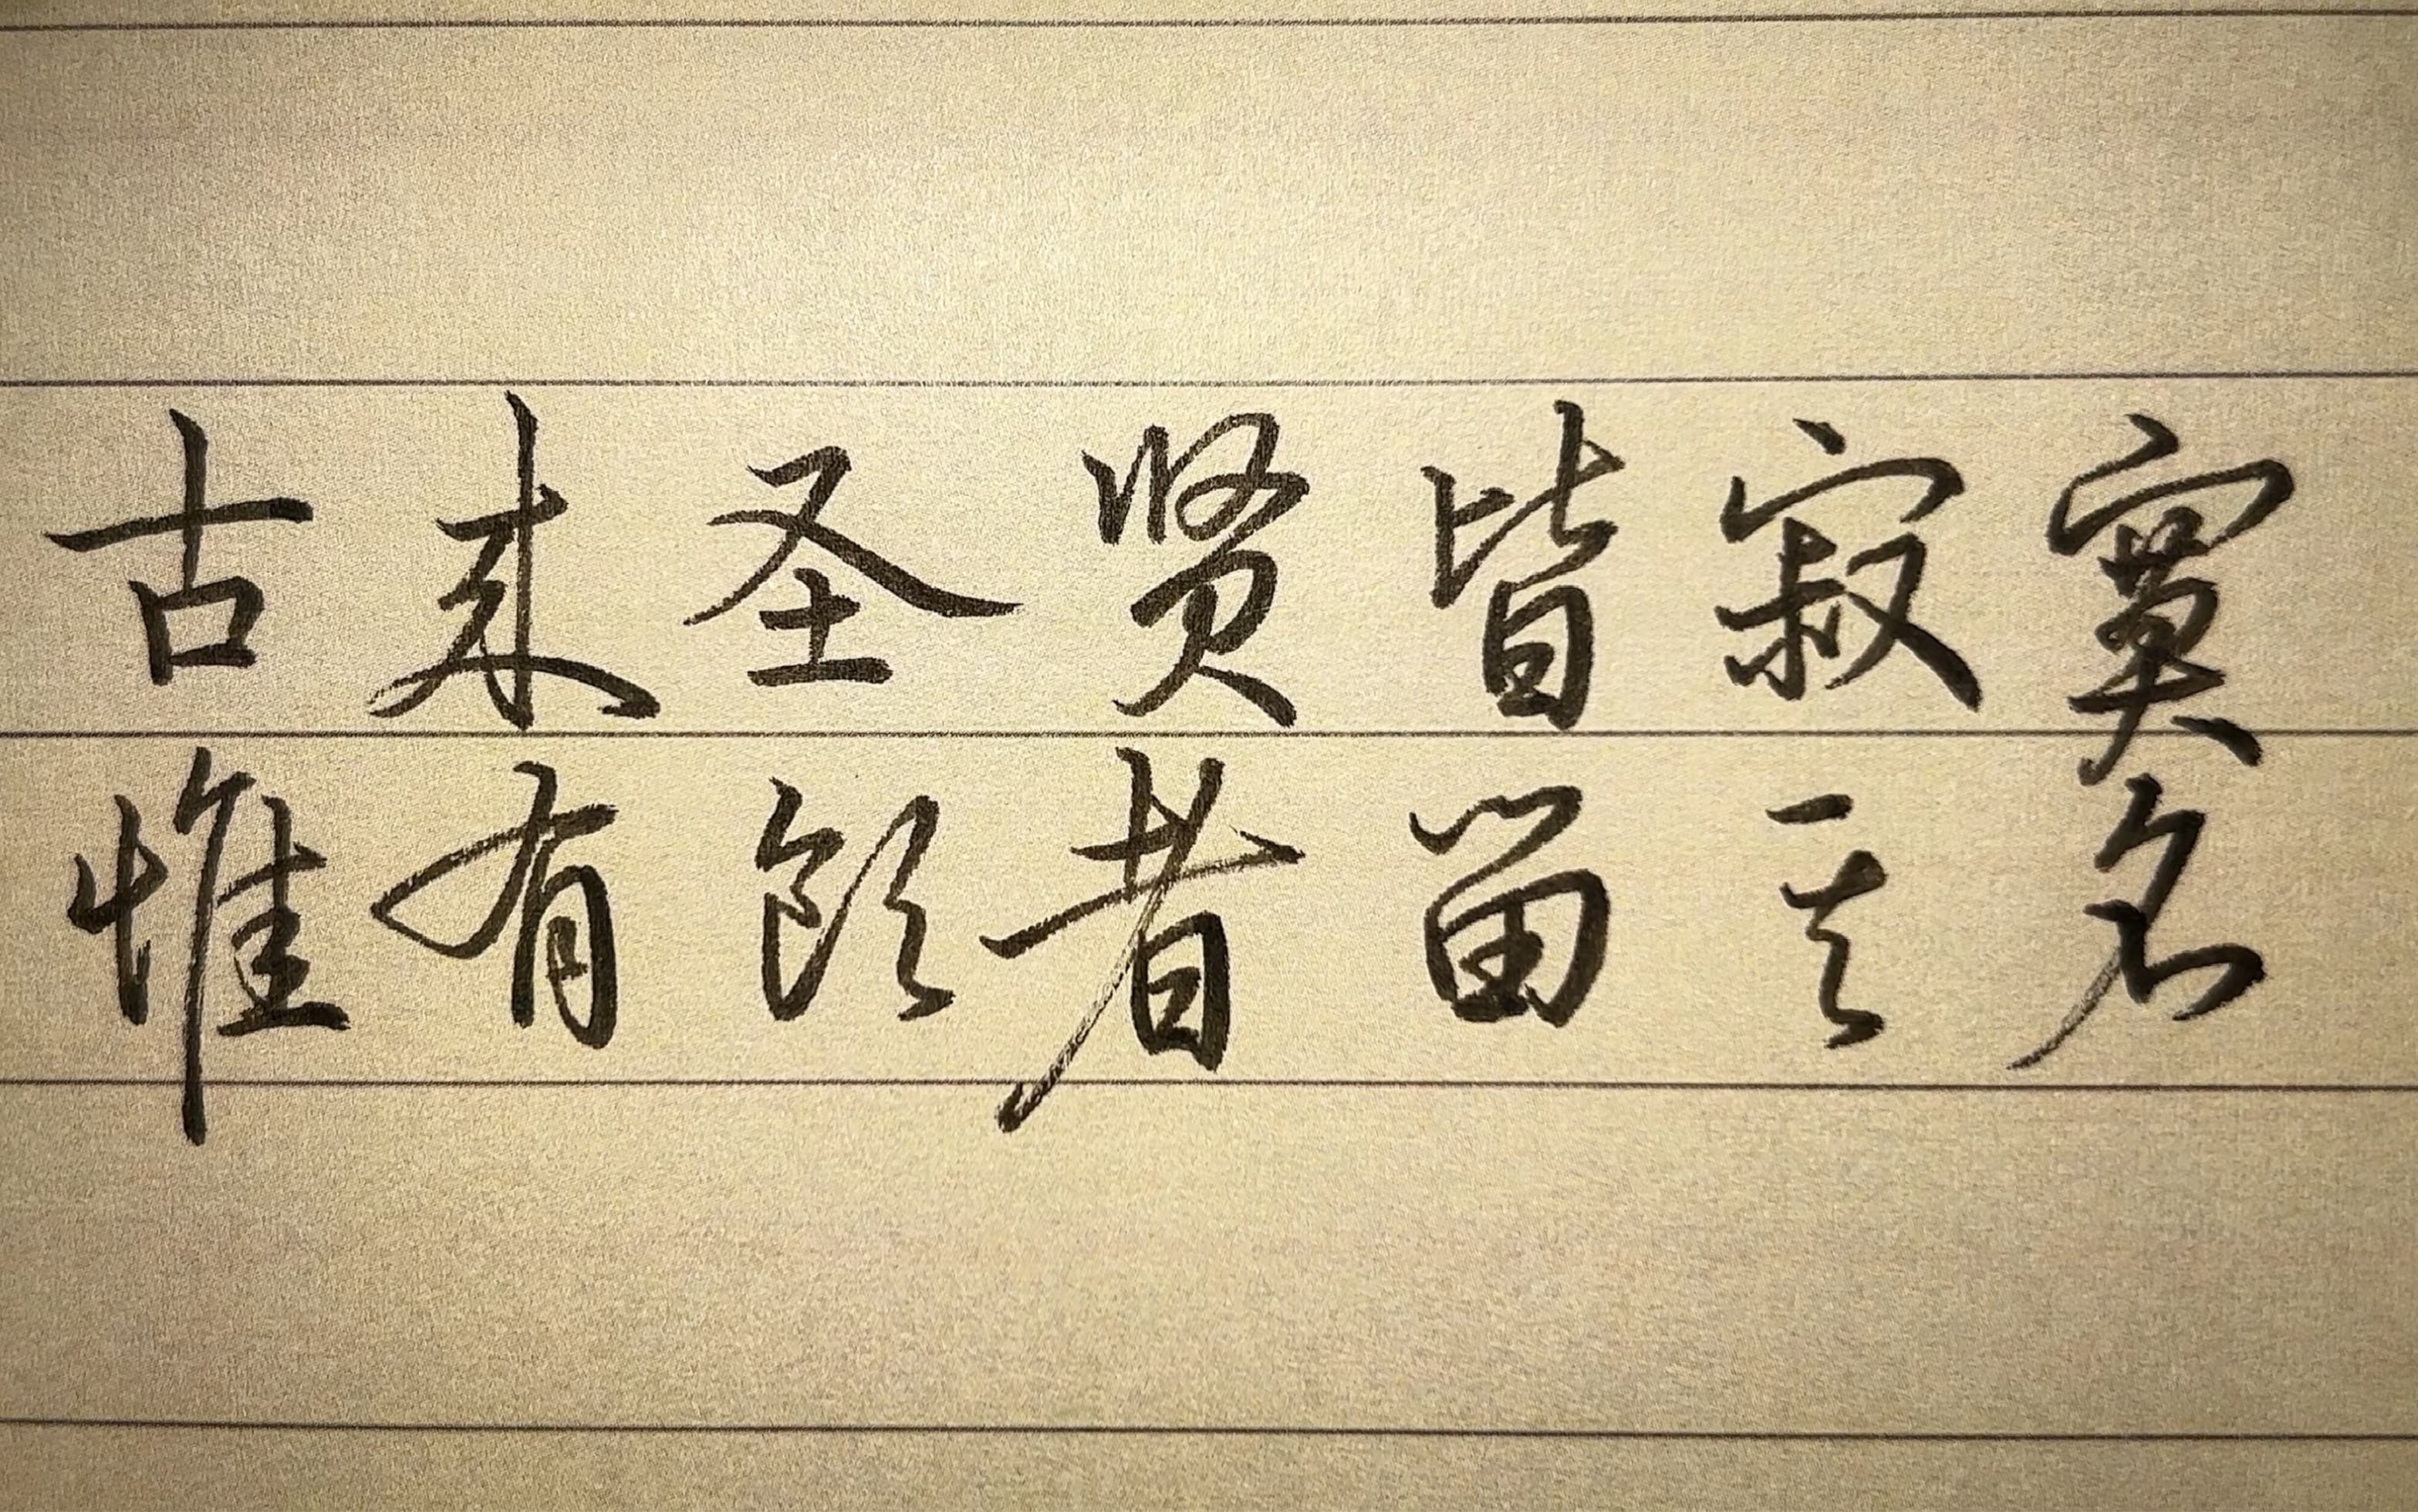 古来圣贤皆寂寞
惟有饮者留其名